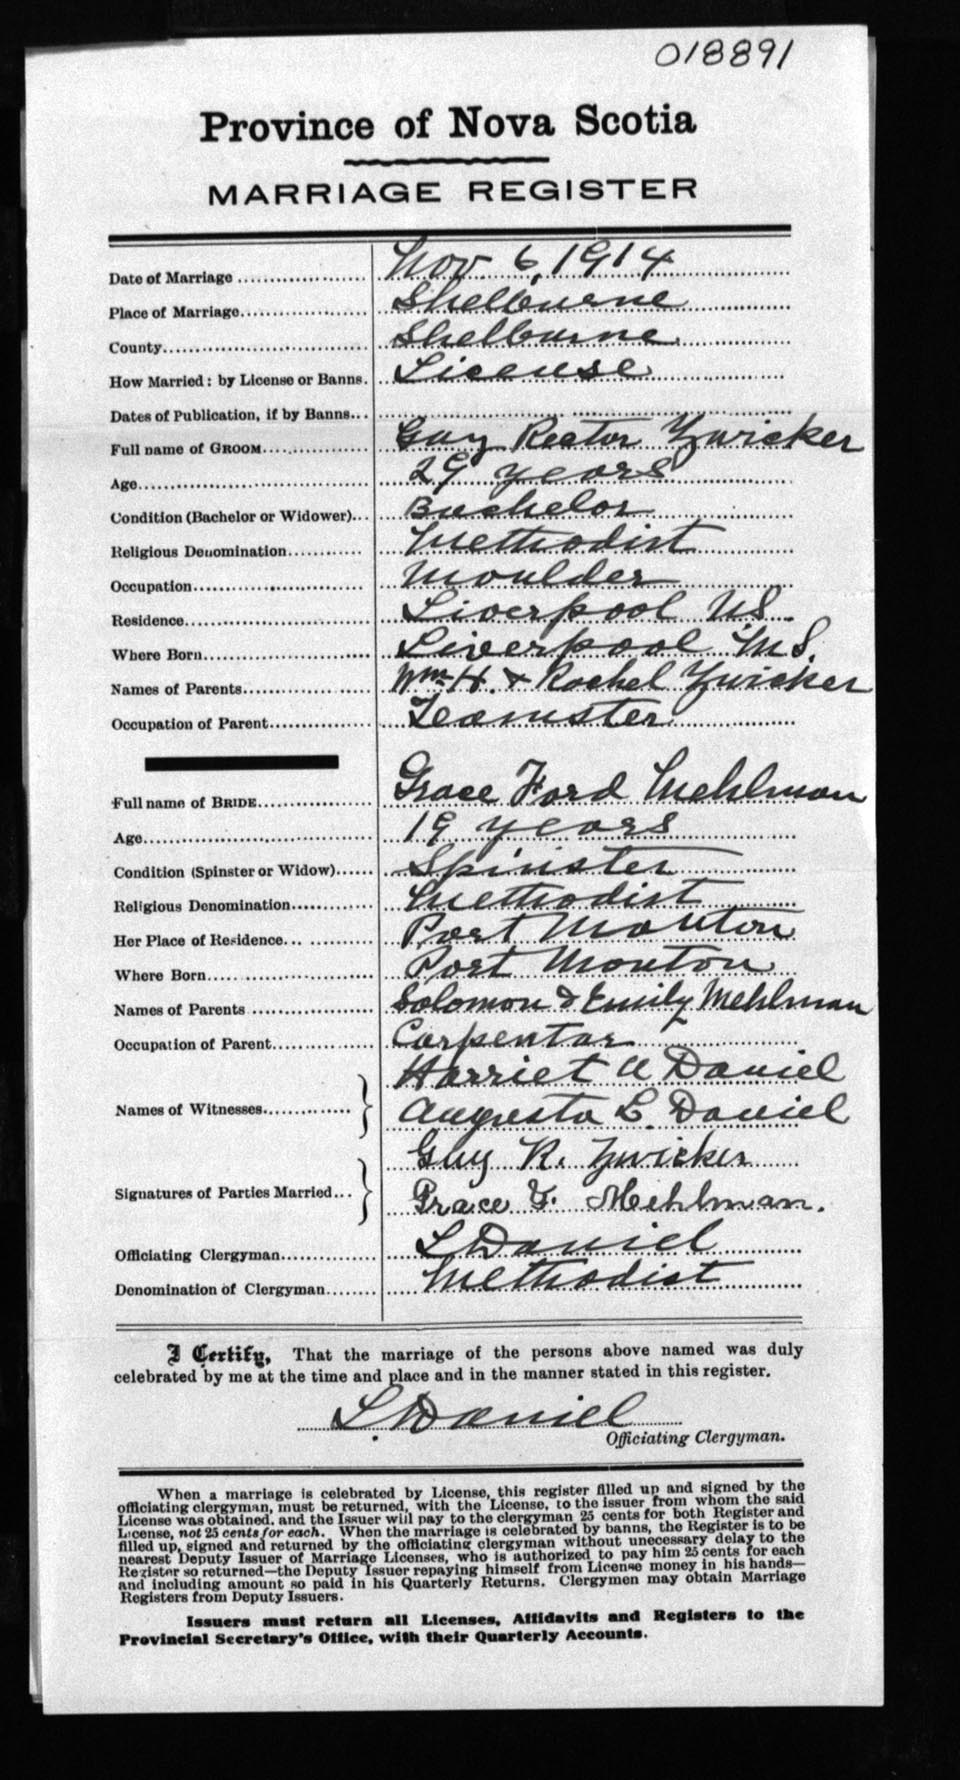 018891
Province of Nova Scotia
MARRIAGE REGISTER
Date of Marriage Nov. 6, 1914
Place of Marriage Shelburne
County Shelburne
How Married: by License or Banns. License
Dates of Publication, if by Banns...
Full name of GROOM Guy Rector Zwicker
Age 29 years
Condition (Bachelor or Widower)... Bachelor
Religious Denomination Methodist
Occupation Moulder
Residence Liverpool N.S.
Where Born Liverpool N.S.
Names of Parents Wm. H. & Rachel Zwicker
Occupation of Parent Teamster
Full name of BRIDE Grace Ford Mehlman
Age 19 years
Condition (Spinster or Widow) Spinster
Religious Denomination Methodist
Her Place of Residence Port Mouton
Where Born Port Mouton
Names of Parents Solomon & Emily Mehlman
Occupation of Parent Carpentar
Names of Witnesses Harriet A Daniel
Augusta L. Daniel
Signatures of Parties Married Guy R. Zwicker
Grace F. Mehlman.
Officiating Clergyman L Daniel
Denomination of Clergyman Methodist
I Certify, That the marriage of the persons above named was duly
celebrated by me at the time and place and in the manner stated in this register.
L. Daniel
Officiating Clergyman.
When a marriage is celebrated by License, this register filled up and signed by the
officiating clergyman, must be returned, with the License, to the issuer from whom the said
License was obtained, and the Issuer will pay to the clergyman 25 cents for both Register and
License, not 25 cents for each. When the marriage is celebrated by banns, the Register is to be
filled up, signed and returned by the officiating clergyman without unecessary delay to the
nearest Deputy Issuer of Marriage Licenses, who is authorized to pay him 25 cents for each
Register so returned—the Deputy Issuer repaying himself from License money in his hands—
and including amount so paid in his Quarterly Returns. Clergymen may obtain Marriage
Registers from Deputy Issuers.
Issuers must return all Licenses, Affidavits and Registers to the
Provincial Secretary's Office, with their Quarterly Accounts.